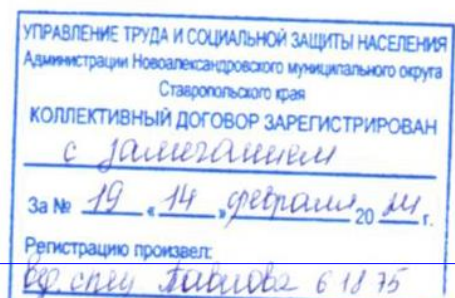 УПРАВЛЕНИЕ ТРУДА И СОЦИАЛЬНОЙ ЗАЩИТЫ НАСЕЛЕНИЯ
Администрации Новоалександровского муниципального округа
Ставропольского края
КОЛЛЕКТИВНЫЙ ДОГОВОР ЗАРЕГИСТРИРОВАН
с замечанием
За № 19 « 14 » февраля 20 24 г.
Регистрацию произвел:
вед. спец Павлова 6 18 75